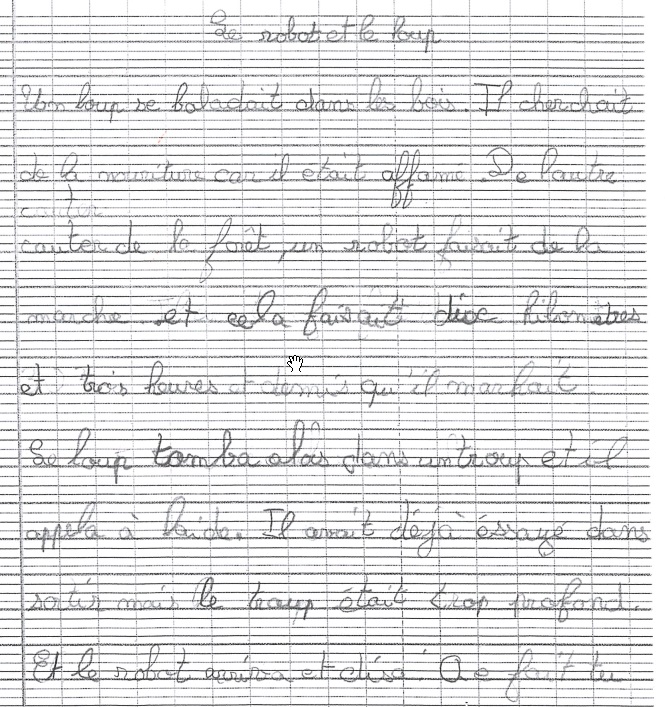 Le robot et le loup
Un loup se baladait dans les bois. Il cherchait
de la nuriture car il était affamé De l'autre
cauter de la forêt, un robot faisait de la
marche et cela faisait dixe kilomètres
et trois heures et demis qu'il marhait
Le loup tomba alors dans un troup et il
appela à l'aide. Il avait déjà éssayé dans
sortir mais le troup était trop profond.
Et le robot arriva et disa Que fait tu